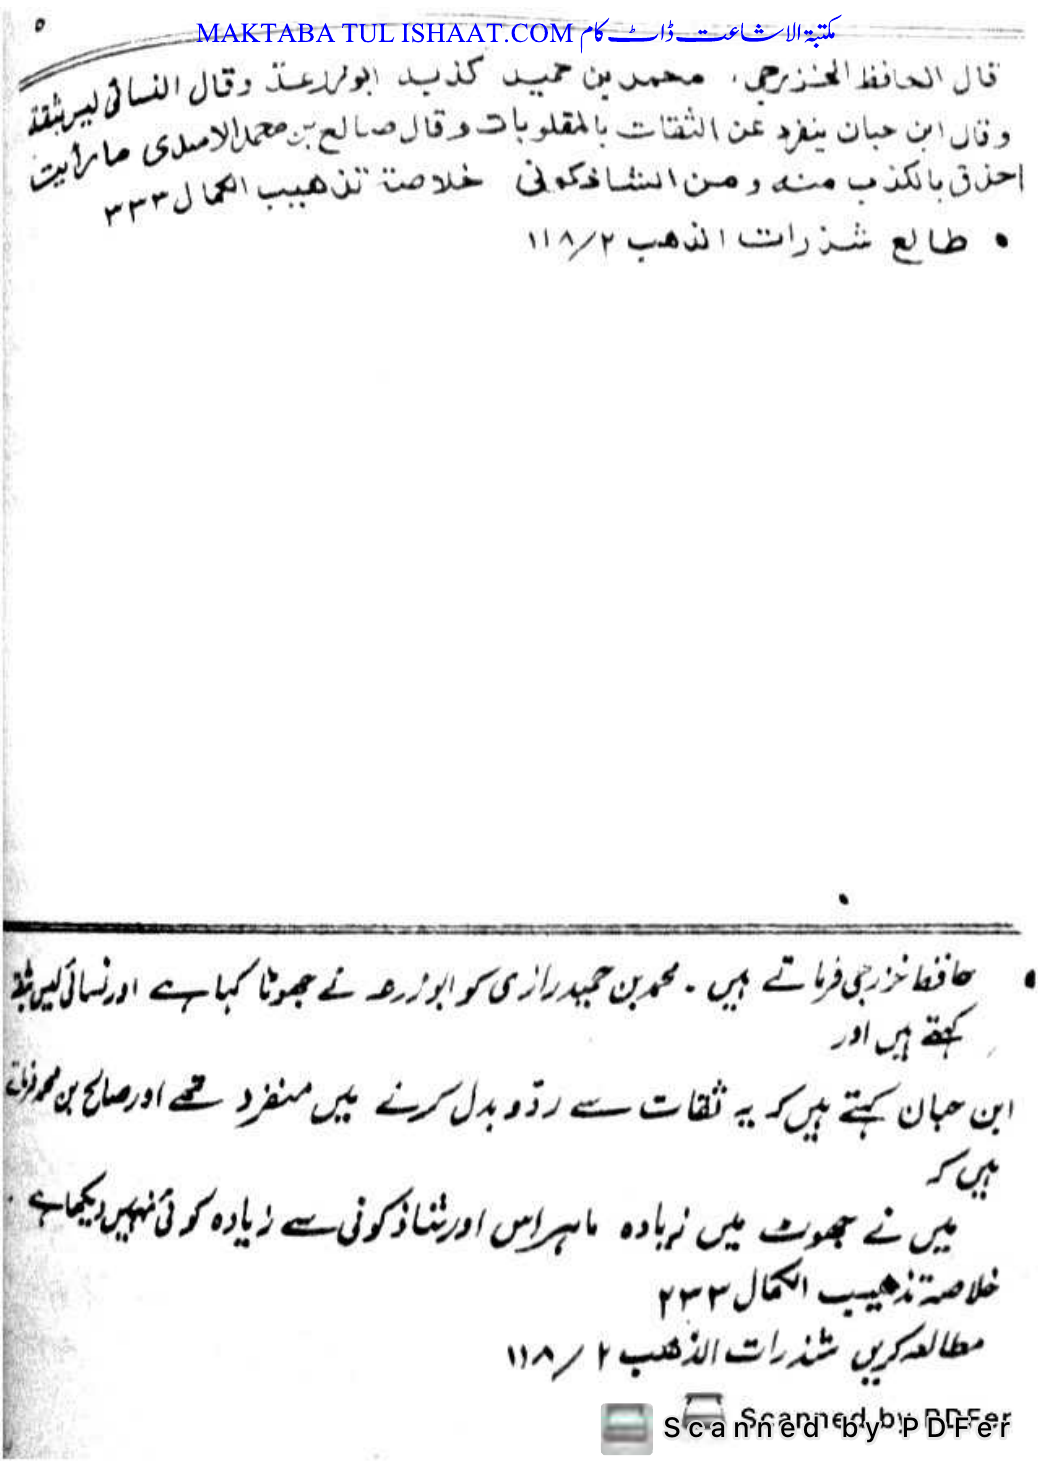 ٥
MAKTABA TUL ISHAAT.COM مکتبۃ الاشاعت ڈاٹ کام
قال الحافظ الخزرجی، محمد بن حمید کذبہ ابوزرعۃ وقال النسائی لیس بثقۃ
وقال ابن حبان ینفرد عن الثقات بالمقلوبات وقال صالح بن محمد الاسدی ما رأیت
احذق بالکذب منہ ومن الشاذکونی خلاصۃ تذھیب الکمال ٣٣٣
• طالع شذرات الذھب ٢/١١٨
• حافظ خزرجی فرماتے ہیں ۔ محمد بن حمید رازی کو ابوزرعہ نے جھوٹا کہا ہے اور نسائی لیس بثقۃ
کہتے ہیں اور
ابن حبان کہتے ہیں کہ یہ ثقات سے ردّ و بدل کرنے میں منفرد تھے اور صالح بن محمد فرماتے
ہیں کہ
میں نے جھوٹ میں زیادہ ماہر اس اور شاذکونی سے زیادہ کوئی نہیں دیکھا ہے ۔
خلاصۃ تذھیب الکمال ٢٣٣
مطالعہ کریں شذرات الذھب ٢/١١٨
Scanned by PDFer
Scanned by PDFer